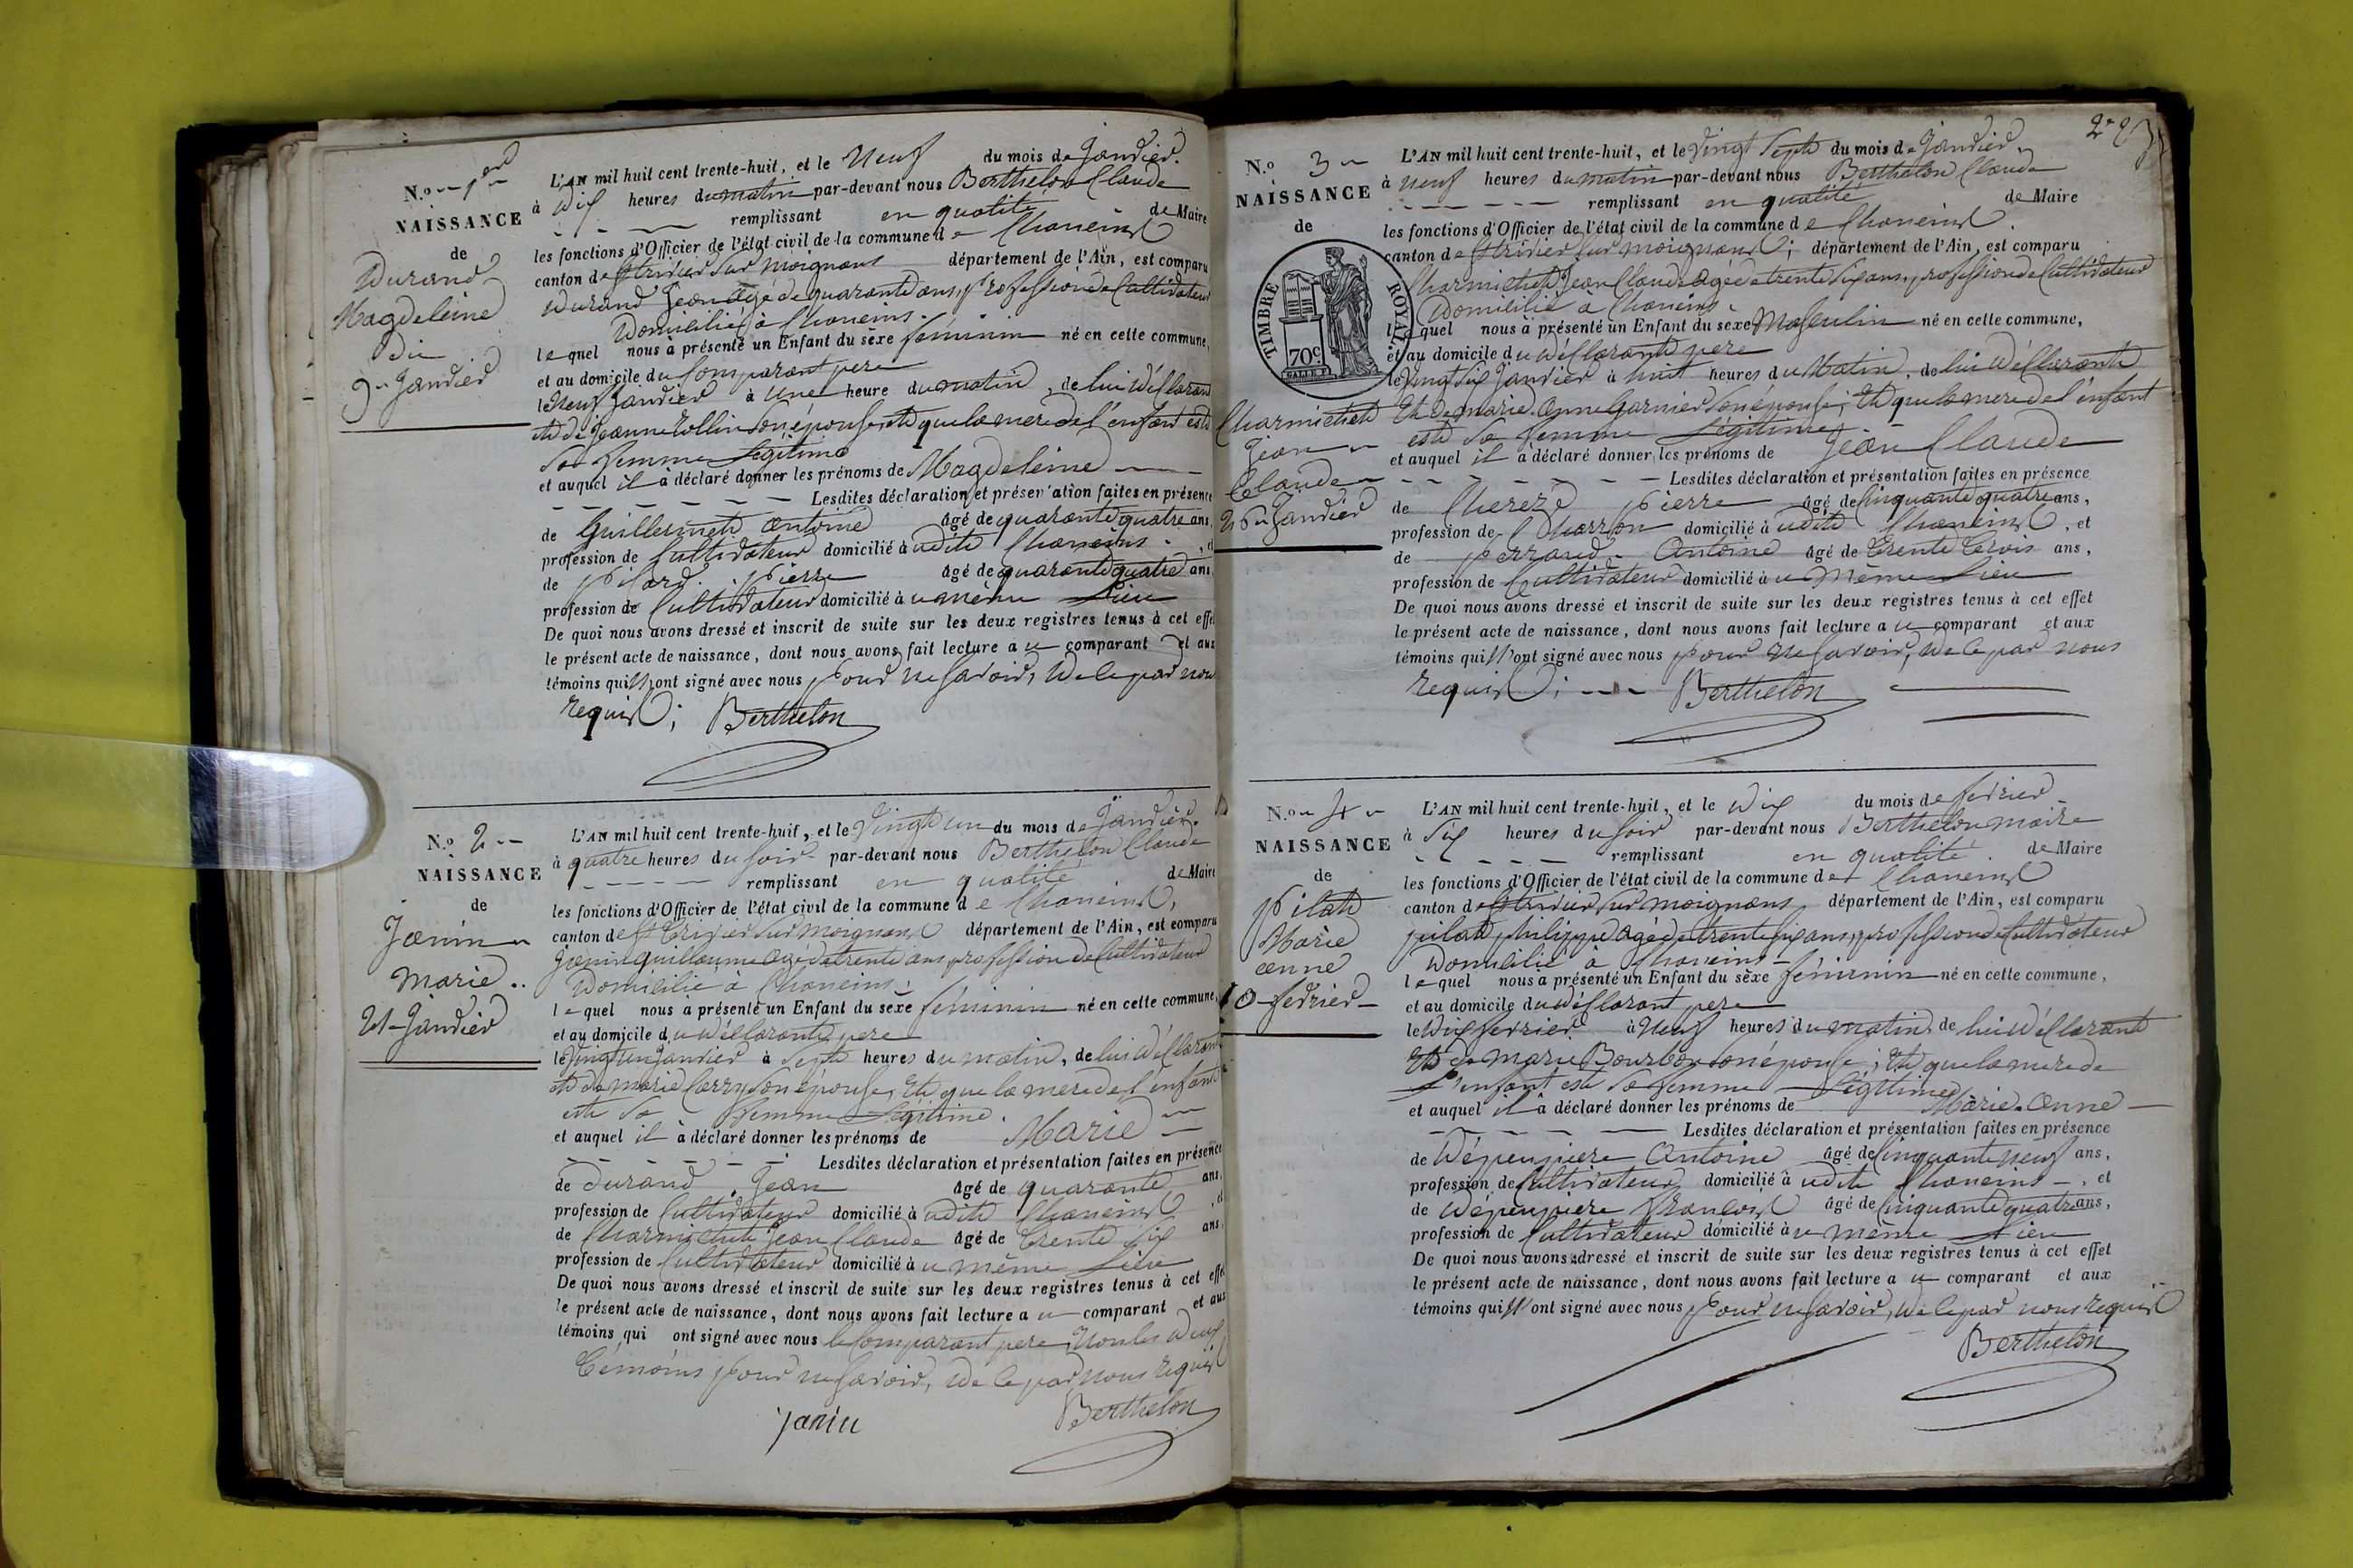 N.o 1er
NAISSANCE
de
Durand
Magdeleine
du
9 Janvier
L'AN mil huit cent trente-huit, et le Neuf du mois de Janvier.
à dix heures du matin par-devant nous Berthelon Claude
remplissant en qualité de Maire
les fonctions d'Officier de l'état civil de la commune de Chaneins
canton de St trivier Sur moignans département de l'Ain, est comparu
Durand Jean âgé de quarante ans, profession de Cultivateur
Domicilié à Chaneins.
lequel nous à présenté un Enfant du sèxe féminin né en cette commune,
et au domicile du Comparant pere
le Neuf Janvier à Une heure du matin, de lui Déclarant
et de Jeanne Rollin Son épouse, et que la mere de l'enfant est
Sa femme Légitime
et auquel il à déclaré donner les prénoms de Magdeleine
Lesdites déclaration et présentation faites en présence
de Guillermet antoine âgé de quarante quatre ans,
profession de Cultivateur domicilié à udit Chaneins, et
de Picard Pierre âgé de quarante quatre ans
profession de Cultivateur domicilié à u même Lieu
De quoi nous avons dressé et inscrit de suite sur les deux registres tenus à cet effet
le présent acte de naissance, dont nous avons fait lecture a u comparant et aux
témoins qui N'ont signé avec nous Pour ne Savoir, De ce par nous
Requis; Berthelon
N.o 2
NAISSANCE
de
Janin
Marie
21 Janvier
L'AN mil huit cent trente-huit, et le Vingt un du mois de Janvier.
à quatre heures du Soir par-devant nous Berthelon Claude
remplissant en qualité de Maire
les fonctions d'Officier de l'état civil de la commune de Chaneins,
canton de St Trivier Sur moignans département de l'Ain, est comparu
Janin guillaume âgé de trente ans profession de Cultivateur
Domicilié à Chaneins;
lequel nous à présenté un Enfant du sèxe féminin né en cette commune,
et au domicile du Déclarant pere
le Vingt un Janvier à Sept heures du matin, de lui Déclarant
et de marie Carry Son épouse, Et que la mere de l'enfant
est Sa femme Légitime.
et auquel il à déclaré donner les prénoms de Marie
Lesdites déclaration et présentation faites en présence
de durand Jean âgé de quarante ans,
profession de Cultivateur domicilié à udit Chaneins, et
de Charmichet Jean Claude âgé de Trente Six ans,
profession de Cultivateur domicilié à u même Lieu
De quoi nous avons dressé et inscrit de suite sur les deux registres tenus à cet effet
le présent acte de naissance, dont nous avons fait lecture a u comparant et aux
témoins qui ont signé avec nous le Comparant pere, Non les Deux
Témoins Pour ne Savoir, De ce par Nous requis
janin Berthelon
N.o 3
NAISSANCE
de
TIMBRE ROYAL
70c
Charmichet
Jean
Claude
26 Janvier
L'AN mil huit cent trente-huit, et le Vingt Sept du mois de Janvier.
à Neuf heures du matin par-devant nous Berthelon Claude
remplissant en qualité de Maire
les fonctions d'Officier de l'état civil de la commune de Chaneins.
canton de St trivier Sur moignans; département de l'Ain, est comparu
Charmichet Jean Claude âgé de trente Six ans, profession de Cultivateur
Domicilié à Chaneins.
lequel nous à présenté un Enfant du sexe Masculin né en cette commune,
et au domicile du Déclarant pere
le Vingt Six Janvier à huit heures du Matin, de lui Déclarant
Et de marie anne Garnier Son épouse; Et que la mere de l'enfant
est Sa femme Légitime
et auquel il à déclaré donner les prénoms de Jean Claude
Lesdites déclaration et présentation faites en présence
de Pierre âgé de Cinquante quatre ans,
profession de Charron domicilié à udit Chaneins, et
de Perraud Antoine âgé de Trente Trois ans,
profession de Cultivateur domicilié à u Même Lieu
De quoi nous avons dressé et inscrit de suite sur les deux registres tenus à cet effet
le présent acte de naissance, dont nous avons fait lecture a u comparant et aux
témoins qui N'ont signé avec nous Pour Ne Savoir, De ce par nous
Requis; Berthelon
N.o 4
NAISSANCE
de
Pilat
Marie
anne
10 fevrier
L'AN mil huit cent trente-huit, et le Dix du mois de fevrier
à Six heures du Soir par-devant nous Berthelon maire
remplissant en qualité de Maire
les fonctions d'Officier de l'état civil de la commune de Chaneins
canton de St trivier Sur moignans, département de l'Ain, est comparu
pilat philippe âgé de trente Six ans, profession de Cultivateur
Domicilié à Chaneins
lequel nous à présenté un Enfant du sèxe féminin né en cette commune,
et au domicile du Déclarant pere
le Dix fevrier à Neuf heures du matin, de lui Déclarant
Et de marie Bourbon Son épouse; Et que la mere de
L'enfant est Sa femme Légitime
et auquel il à déclaré donner les prénoms de Marie. anne
Lesdites déclaration et présentation faites en présence
de Dépeupiere Antoine âgé de Cinquante Neuf ans,
profession de Cultivateur domicilié à udit Chaneins, et
de Dépeupiere François âgé de Cinquante quatre ans,
profession de Cultivateur domicilié à u même Lieu
De quoi nous avons dressé et inscrit de suite sur les deux registres tenus à cet effet
le présent acte de naissance, dont nous avons fait lecture a u comparant et aux
témoins qui N'ont signé avec nous Pour ne Savoir, De ce par nous requis
Berthelon